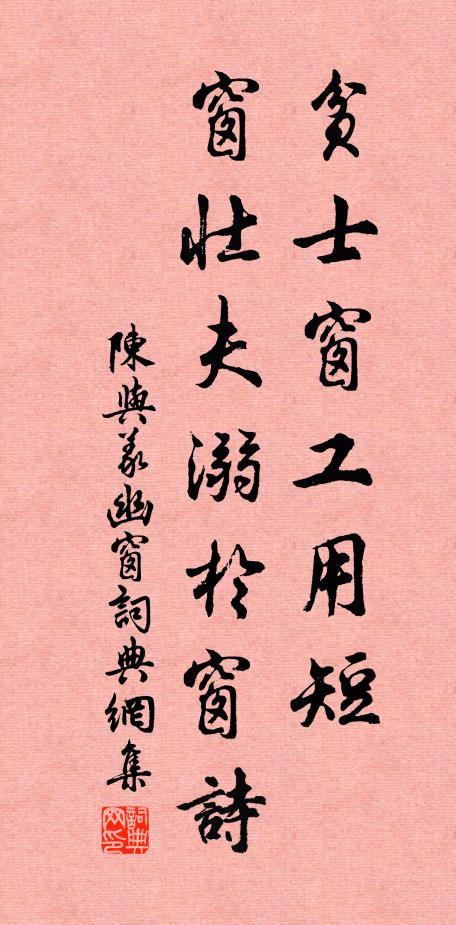 貧士窗工用短
窗壯夫溺於窗詩
陳與義幽窗詞典網集
詞典网印